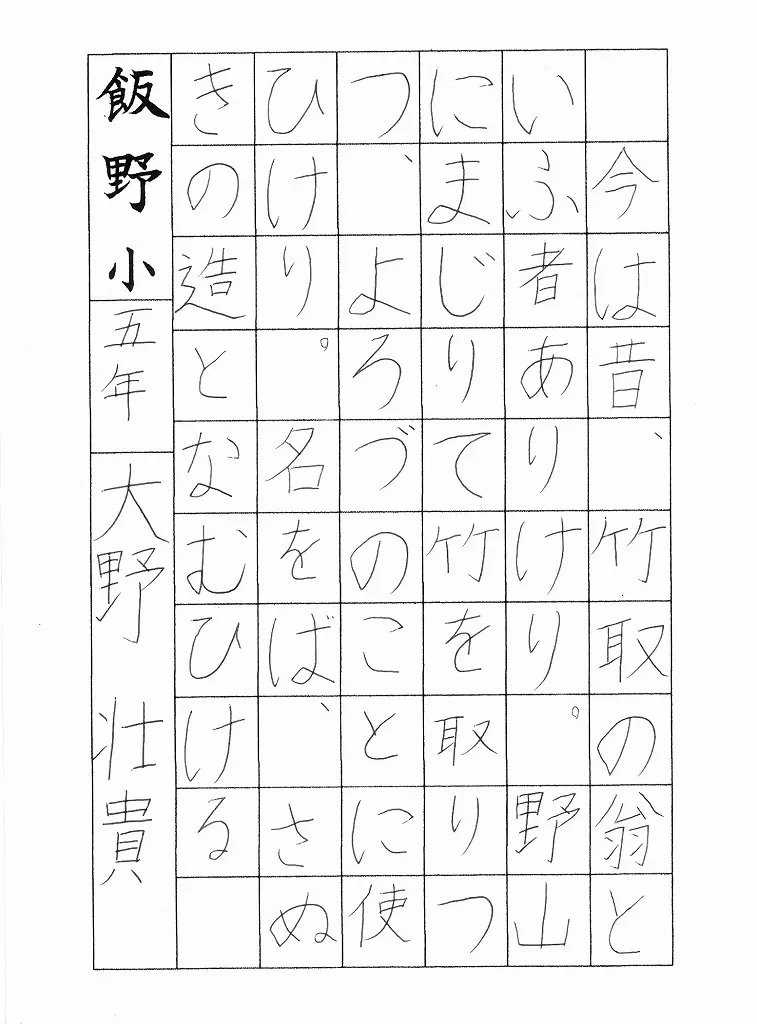 今は昔、竹取の翁と
いふ者ありけり。野山
にまじりて竹を取りつ
つ、よろづのことに使
ひけり。名をば、さぬ
きの造となむひける
飯野小 五年 大野 壮貴